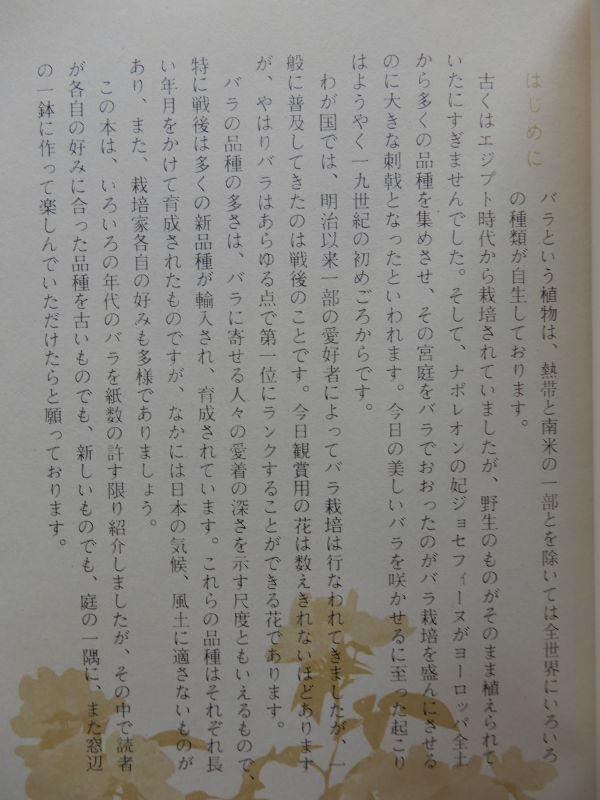 はじめに
バラという植物は、熱帯と南米の一部とを除いては全世界にいろいろ
の種類が自生しております。
古くはエジプト時代から栽培されていましたが、野生のものがそのまま植えられて
いたにすぎませんでした。そして、ナポレオンの妃ジョセフィーヌがヨーロッパ全土
から多くの品種を集めさせ、その宮庭をバラでおおったのがバラ栽培を盛んにさせる
のに大きな刺戟となったといわれます。今日の美しいバラを咲かせるに至った起こり
はようやく一九世紀の初めごろからです。
わが国では、明治以来一部の愛好者によってバラ栽培は行なわれてきましたが、一
般に普及してきたのは戦後のことです。今日観賞用の花は数えきれないほどあります
が、やはりバラはあらゆる点で第一位にランクすることができる花であります。
バラの品種の多さは、バラに寄せる人々の愛着の深さを示す尺度ともいえるもので、
特に戦後は多くの新品種が輸入され、育成されています。これらの品種はそれぞれ長
い年月をかけて育成されたものですが、なかには日本の気候、風土に適さないものが
あり、また、栽培家各自の好みも多様でありましょう。
この本は、いろいろの年代のバラを紙数の許す限り紹介しましたが、その中で読者
が各自の好みに合った品種を古いものでも、新しいものでも、庭の一隅に、また窓辺
の一鉢に作って楽しんでいただけたらと願っております。